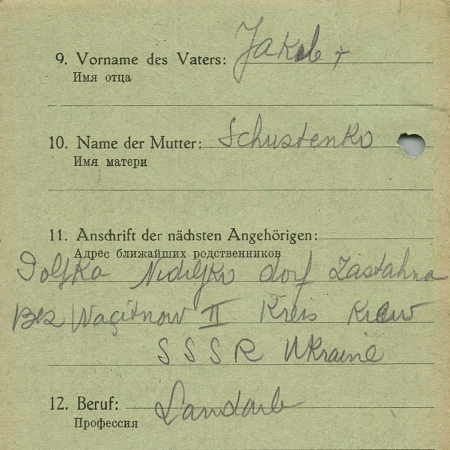 9. Vorname des Vaters: Jakob +
Имя отца
10. Name der Mutter: Schustenko
Имя матери
11. Anschrift der nächsten Angehörigen:
Адрес ближайших родственников
Nidiljko dorf
Bez II Kreis Kiew
SSSR Ukraine
12. Beruf: Landarb
Профессия